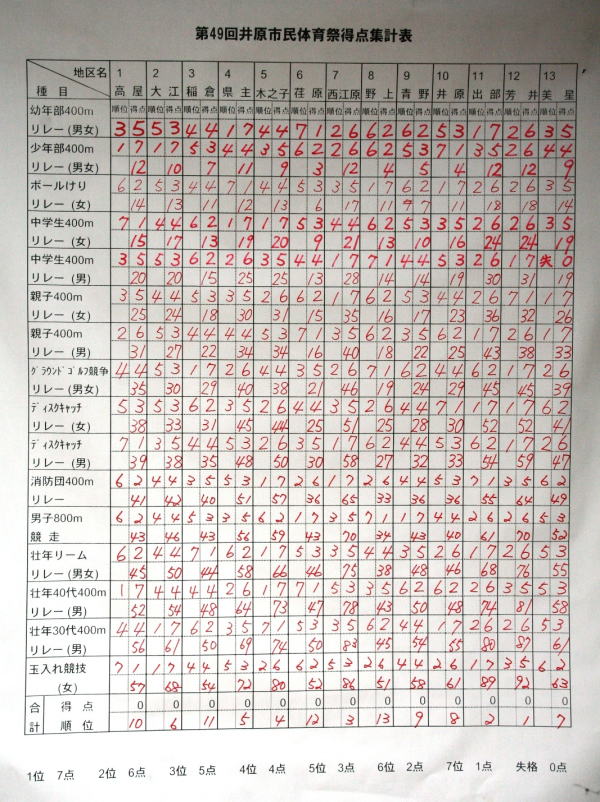 第49回井原市民体育祭得点集計表
地区名 1 2 3 4 5 6 7 8 9 10 11 12 13
種目 高屋 大江 稲倉 県主 木之子 荏原 西江原 野上 青野 井原 出部 芳井 美星
幼年部400m 順位 得点 順位 得点 順位 得点 順位 得点 順位 得点 順位 得点 順位 得点 順位 得点 順位 得点 順位 得点 順位 得点 順位 得点 順位 得点
リレー(男女) 3 5 5 3 4 4 1 7 4 4 7 1 2 6 6 2 6 2 5 3 1 7 2 6 3 5
少年部400m 1 7 1 7 5 3 4 4 3 5 6 2 2 6 6 2 5 3 7 1 3 5 2 6 4 4
リレー(男女) 12 10 7 11 9 3 12 4 5 4 12 12 9
ボールけり 6 2 5 3 4 4 7 1 4 4 5 3 3 5 1 7 6 2 1 7 2 6 2 6 3 5
リレー(女) 14 13 11 12 13 6 17 11 7 11 18 18 14
中学生400m 7 1 4 4 6 2 1 7 1 7 5 3 4 4 6 2 5 3 3 5 2 6 2 6 3 5
リレー(女) 15 17 13 19 20 9 21 13 10 16 24 24 19
中学生400m 3 5 5 3 6 2 2 6 3 5 4 4 1 7 7 1 4 4 5 3 2 6 1 7 失 0
リレー(男) 20 20 15 25 25 13 28 14 14 19 30 31 19
親子400m 3 5 4 4 5 3 3 5 2 6 6 2 1 7 6 2 5 3 4 4 2 6 7 1 1 7
リレー(女) 25 24 18 30 31 15 35 16 17 23 36 32 26
親子400m 2 6 5 3 4 4 4 4 5 3 7 1 3 5 6 2 3 5 6 2 1 7 2 6 1 7
リレー(男) 31 27 22 34 34 16 40 18 22 25 43 38 33
グラウンドゴルフ競争 4 4 5 3 1 7 2 6 4 4 3 5 2 6 7 1 6 2 4 4 6 2 1 7 2 6
リレー(男女) 35 30 29 40 38 21 46 19 24 29 45 45 39
ディスクキャッチ 5 3 5 3 6 2 3 5 2 6 4 4 3 5 2 6 4 4 7 1 1 7 1 7 6 2
リレー(女) 38 33 31 45 44 25 51 25 28 30 52 52 41
ディスクキャッチ 7 1 3 5 4 4 5 3 2 6 3 5 1 7 6 2 4 4 5 3 6 2 1 7 2 6
リレー(男) 39 38 35 48 50 30 58 27 32 33 54 59 47
消防団400m 6 2 4 4 3 5 5 3 1 7 2 6 1 7 2 6 4 4 5 3 7 1 3 5 6 2
リレー 41 42 40 51 57 36 65 33 36 36 55 64 49
男子800m 6 2 4 4 5 3 3 5 6 2 1 7 3 5 7 1 1 7 4 4 2 6 2 6 5 3
競走 43 46 43 56 59 43 70 34 43 40 61 70 52
壮年リーム 6 2 4 4 7 1 6 2 1 7 5 3 3 5 4 4 3 5 2 6 1 7 2 6 5 3
リレー(男女) 45 50 44 58 66 46 75 38 48 46 68 76 55
壮年40代400m 1 7 4 4 4 4 2 6 1 7 7 1 5 3 3 5 6 2 6 2 2 6 3 5 5 3
リレー(男) 52 54 48 64 73 47 78 43 50 48 74 81 58
壮年30代400m 4 4 1 7 6 2 3 5 7 1 5 3 3 5 6 2 4 4 1 7 2 6 2 6 5 3
リレー(男) 56 61 50 69 74 50 83 45 54 55 80 87 61
玉入れ競技 7 1 1 7 4 4 5 3 2 6 6 2 5 3 2 6 4 4 2 6 1 7 3 5 6 2
(女) 57 68 54 72 80 52 86 51 58 61 89 92 63
合計 得点 0 0 0 0 0 0 0 0 0 0 0 0 0
順位 10 6 11 5 4 12 3 13 9 8 2 1 7
1位 7点 2位 6点 3位 5点 4位 4点 5位 3点 6位 2点 7位 1点 失格 0点